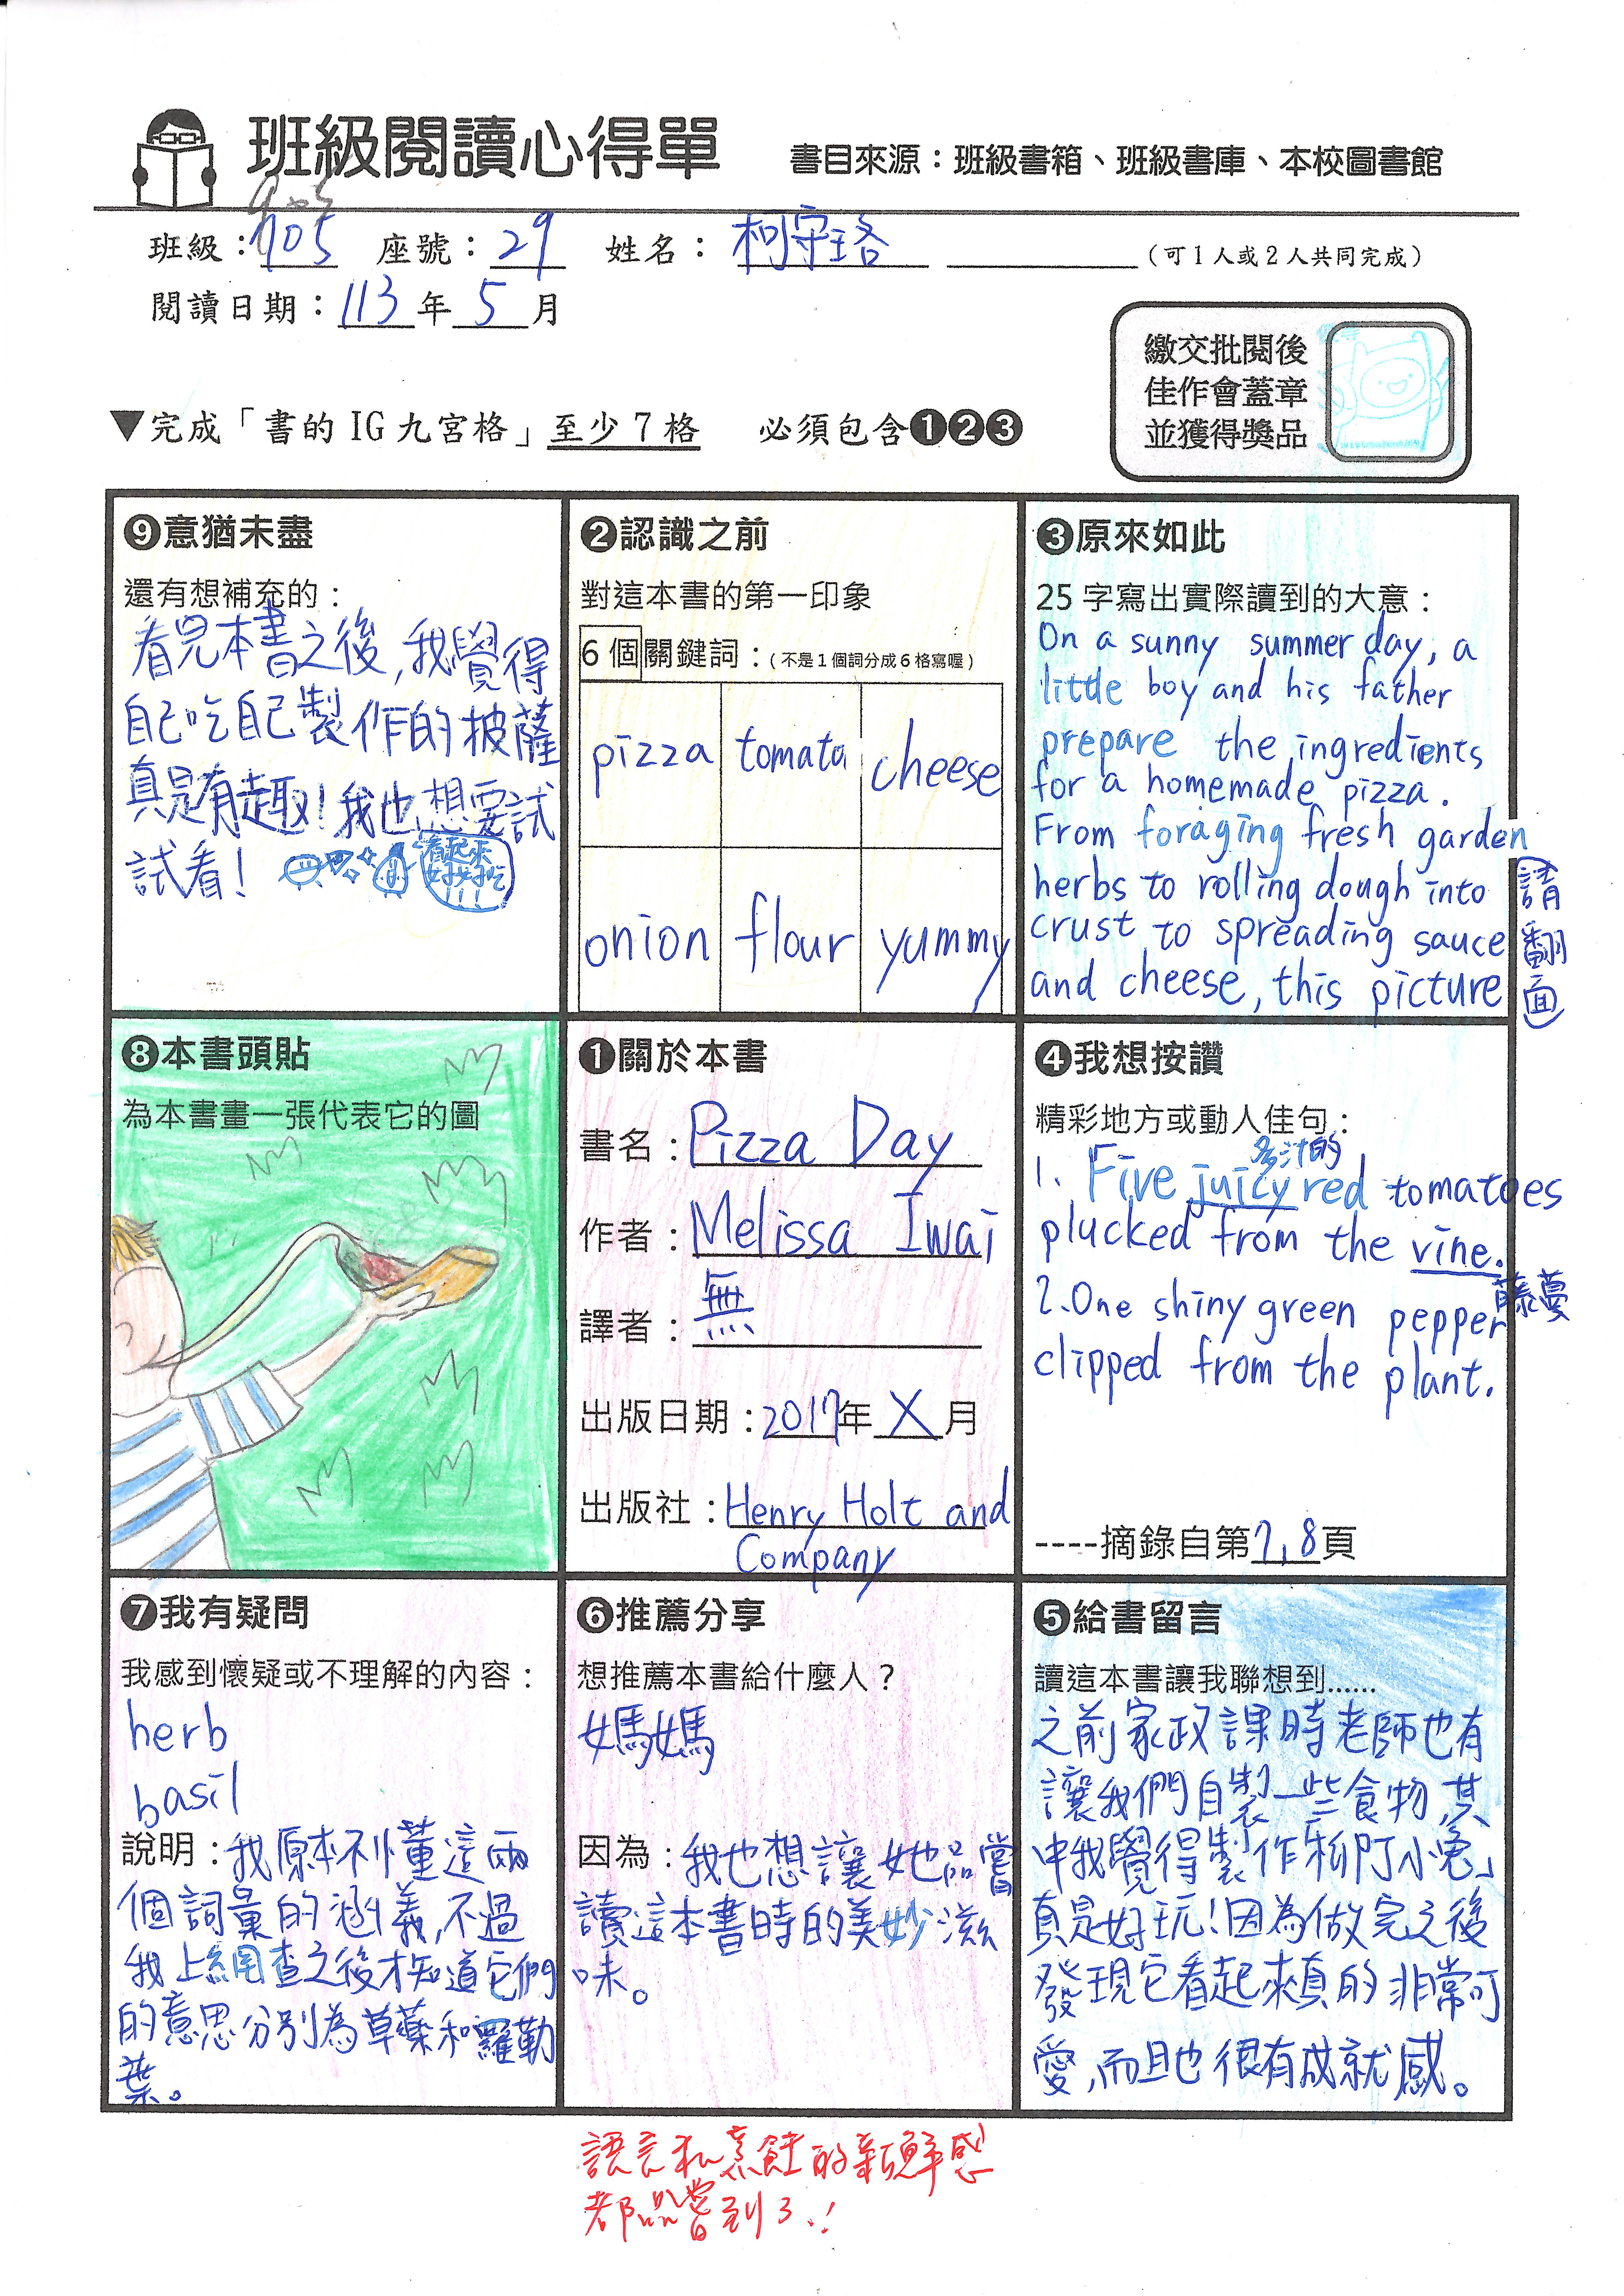 班級閱讀心得單
書目來源：班級書箱、班級書庫、本校圖書館
905
班級：905 座號：29 姓名：柯守珞 （可1人或2人共同完成）
閱讀日期：113年5月
繳交批閱後
佳作會蓋章
並獲得獎品
▼完成「書的 IG 九宮格」至少7格 必須包含❶❷❸
❾意猶未盡
還有想補充的：
看完本書之後,我覺得
自己吃自己製作的披薩
真是有趣!我也想要試
試看!
看起來
好好吃
!!!
❷認識之前
對這本書的第一印象
6個關鍵詞：（不是1個詞分成6格寫喔）
pizza tomato cheese
onion flour yummy
❸原來如此
25字寫出實際讀到的大意：
On a sunny summer day, a
little boy and his father
prepare the ingredients
for a homemade pizza.
From foraging fresh garden
herbs to rolling dough into
crust to spreading sauce
and cheese, this picture
請翻面
❽本書頭貼
為本書畫一張代表它的圖
❶關於本書
書名：Pizza Day
作者：Melissa Iwai
譯者：無
出版日期：2017年X月
出版社：Henry Holt and
Company
❹我想按讚
精彩地方或動人佳句：
多汁的
1. Five juicy red tomatoes
plucked from the vine.
藤蔓
2. One shiny green pepper
clipped from the plant.
----摘錄自第7,8頁
❼我有疑問
我感到懷疑或不理解的內容：
herb
basil
說明：我原本不懂這兩
個詞彙的涵義,不過
我上網查之後才知道它們
的意思分別為草藥和羅勒
葉。
❻推薦分享
想推薦本書給什麼人？
媽媽
因為：我也想讓她品嘗
讀這本書時的美妙滋
味。
❺給書留言
讀這本書讓我聯想到......
之前家政課時老師也有
讓我們自製一些食物,其
中我覺得製作「柳丁小兔」
真是好玩!因為做完之後
發現它看起來真的非常可
愛,而且也很有成就感。
語言和烹飪的新鮮感
都品嘗到了!